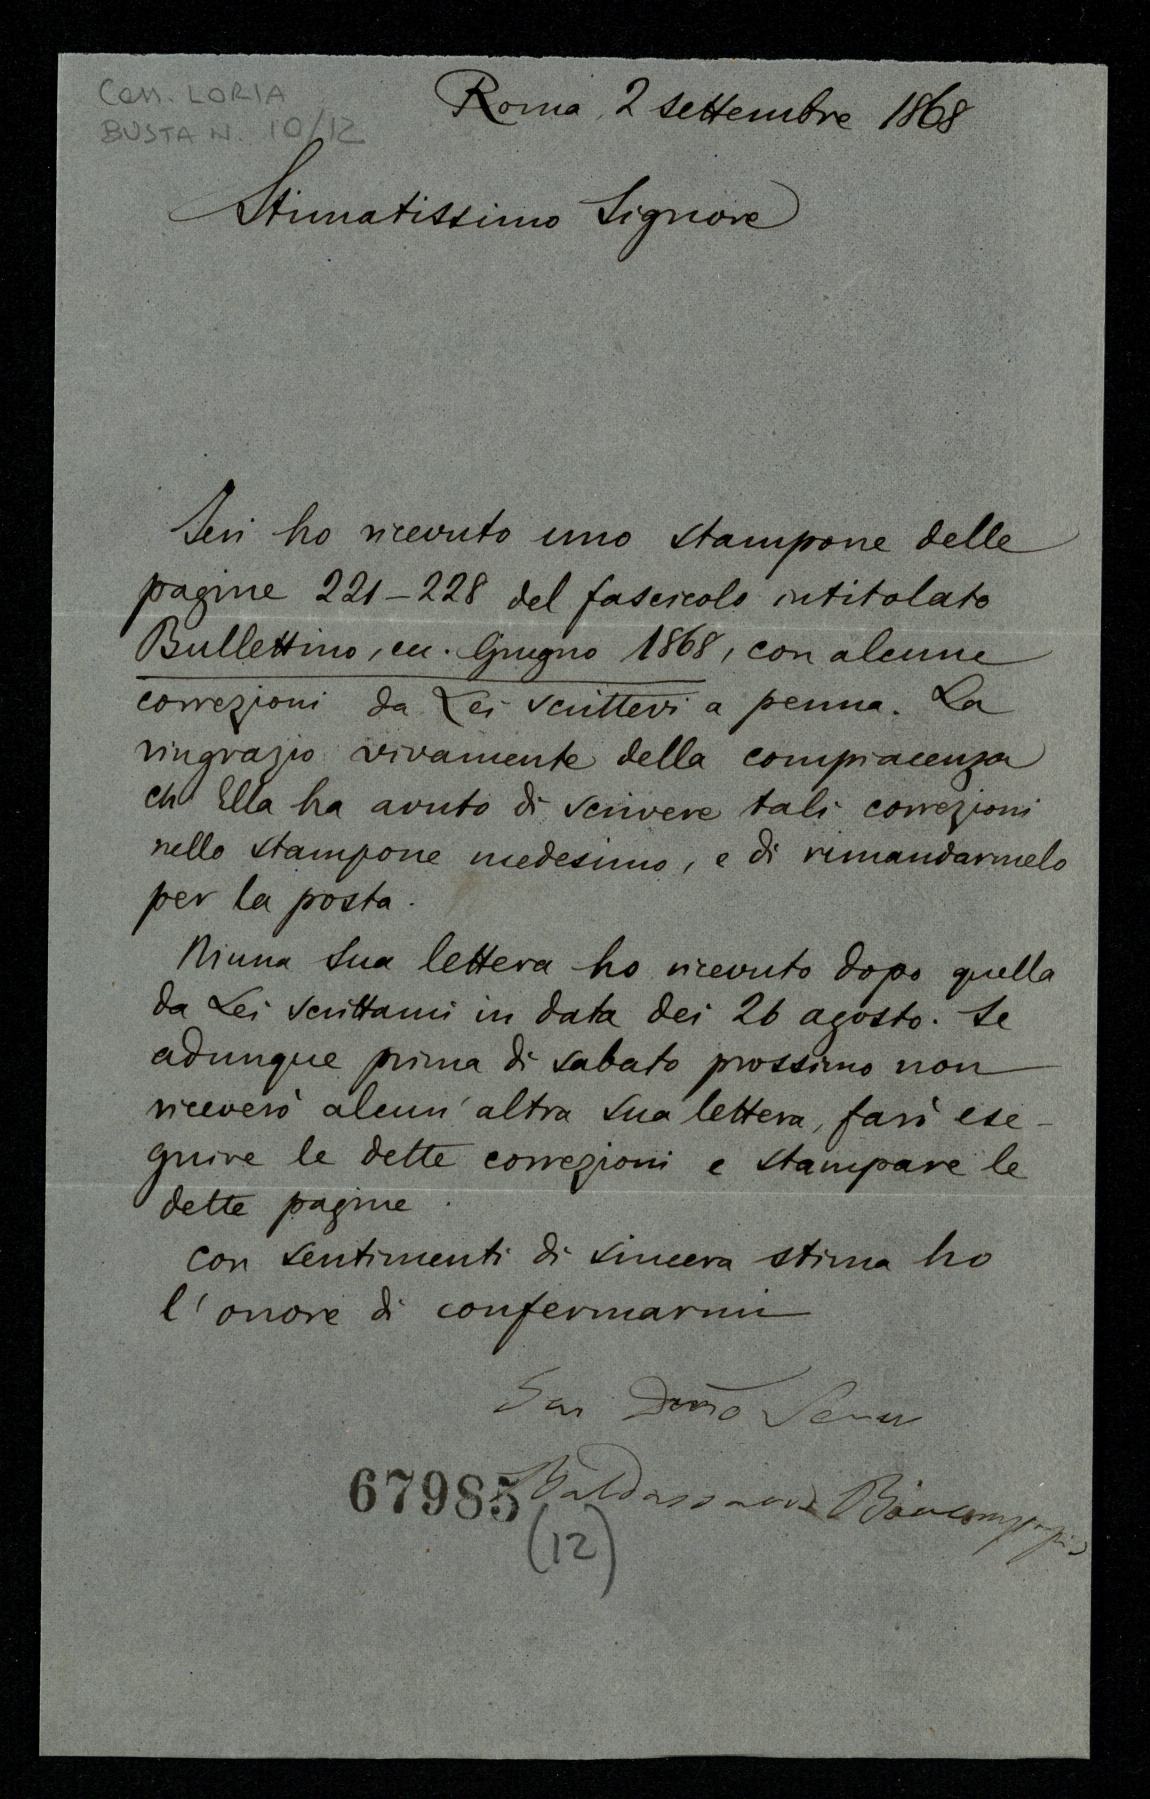 Cass. LORIA
BUSTA N. 10/12
Roma, 2 settembre 1868
Stimatissimo Signore
Ieri ho ricevuto uno stampone delle
pagine 221–228 del fascicolo intitolato
Bullettino, ec. Giugno 1868, con alcune
correzioni da Lei scrittevi a penna. La
ringrazio vivamente della compiacenza
ch' Ella ha avuto di scrivere tali correzioni
nello stampone medesimo, e di rimandarmelo
per la posta.
Niuna sua lettera ho ricevuto dopo quella
da Lei scrittami in data dei 26 agosto. Se
adunque prima di sabato prossimo non
riceverò alcun' altra sua lettera, farò ese-
guire le dette correzioni e stampare le
dette pagine.
Con sentimenti di sincera stima ho
l'onore di confermarmi
Suo
Baldassarre Boncompagni
67985
(12)